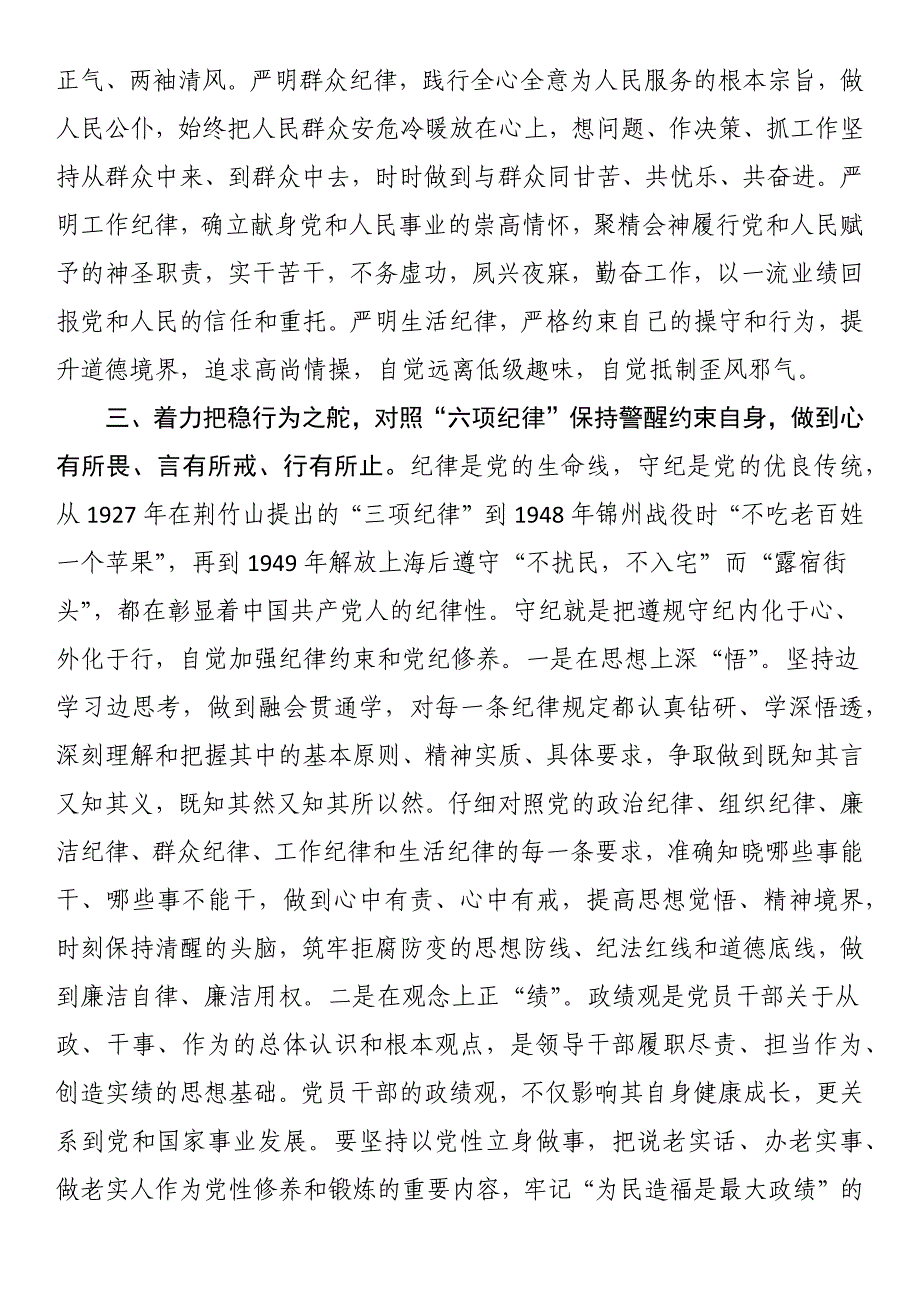 正气、两袖清风。严明群众纪律，践行全心全意为人民服务的根本宗旨，做
人民公仆，始终把人民群众安危冷暖放在心上，想问题、作决策、抓工作坚
持从群众中来、到群众中去，时时做到与群众同甘苦、共忧乐、共奋进。严
明工作纪律，确立献身党和人民事业的崇高情怀，聚精会神履行党和人民赋
予的神圣职责，实干苦干，不务虚功，夙兴夜寐，勤奋工作，以一流业绩回
报党和人民的信任和重托。严明生活纪律，严格约束自己的操守和行为，提
升道德境界，追求高尚情操，自觉远离低级趣味，自觉抵制歪风邪气。
三、着力把稳行为之舵，对照“六项纪律”保持警醒约束自身，做到心
有所畏、言有所戒、行有所止。纪律是党的生命线，守纪是党的优良传统，
从 1927 年在荆竹山提出的“三项纪律”到 1948 年锦州战役时“不吃老百姓
一个苹果”，再到 1949 年解放上海后遵守“不扰民，不入宅”而“露宿街
头”，都在彰显着中国共产党人的纪律性。守纪就是把遵规守纪内化于心、
外化于行，自觉加强纪律约束和党纪修养。一是在思想上深“悟”。坚持边
学习边思考，做到融会贯通学，对每一条纪律规定都认真钻研、学深悟透，
深刻理解和把握其中的基本原则、精神实质、具体要求，争取做到既知其言
又知其义，既知其然又知其所以然。仔细对照党的政治纪律、组织纪律、廉
洁纪律、群众纪律、工作纪律和生活纪律的每一条要求，准确知晓哪些事能
干、哪些事不能干，做到心中有责、心中有戒，提高思想觉悟、精神境界，
时刻保持清醒的头脑，筑牢拒腐防变的思想防线、纪法红线和道德底线，做
到廉洁自律、廉洁用权。二是在观念上正“绩”。政绩观是党员干部关于从
政、干事、作为的总体认识和根本观点，是领导干部履职尽责、担当作为、
创造实绩的思想基础。党员干部的政绩观，不仅影响其自身健康成长，更关
系到党和国家事业发展。要坚持以党性立身做事，把说老实话、办老实事、
做老实人作为党性修养和锻炼的重要内容，牢记“为民造福是最大政绩”的